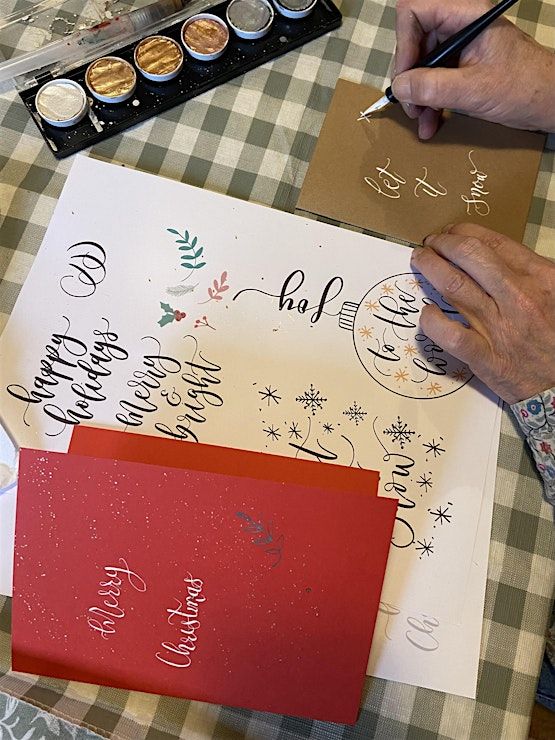 let
it
Snow
Joy
to the
happy
holidays
Merry
&
bright
Snow
Merry
Christmas
Ch